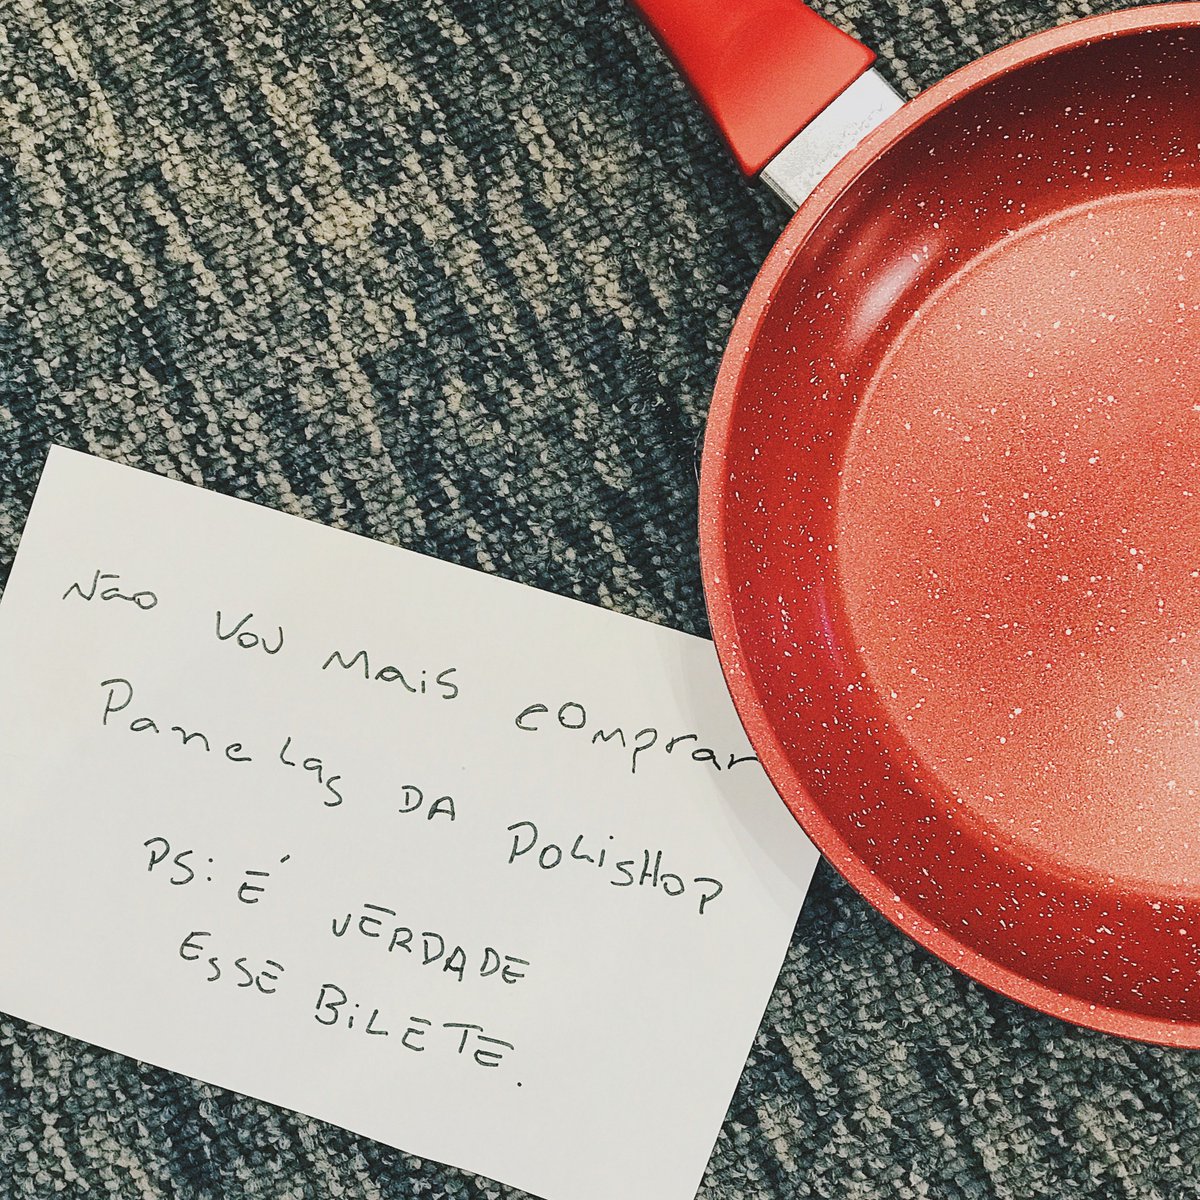 Não vou mais comprar
Panelas DA POLISHOP
PS: É VERDADE
ESSE BILETE.